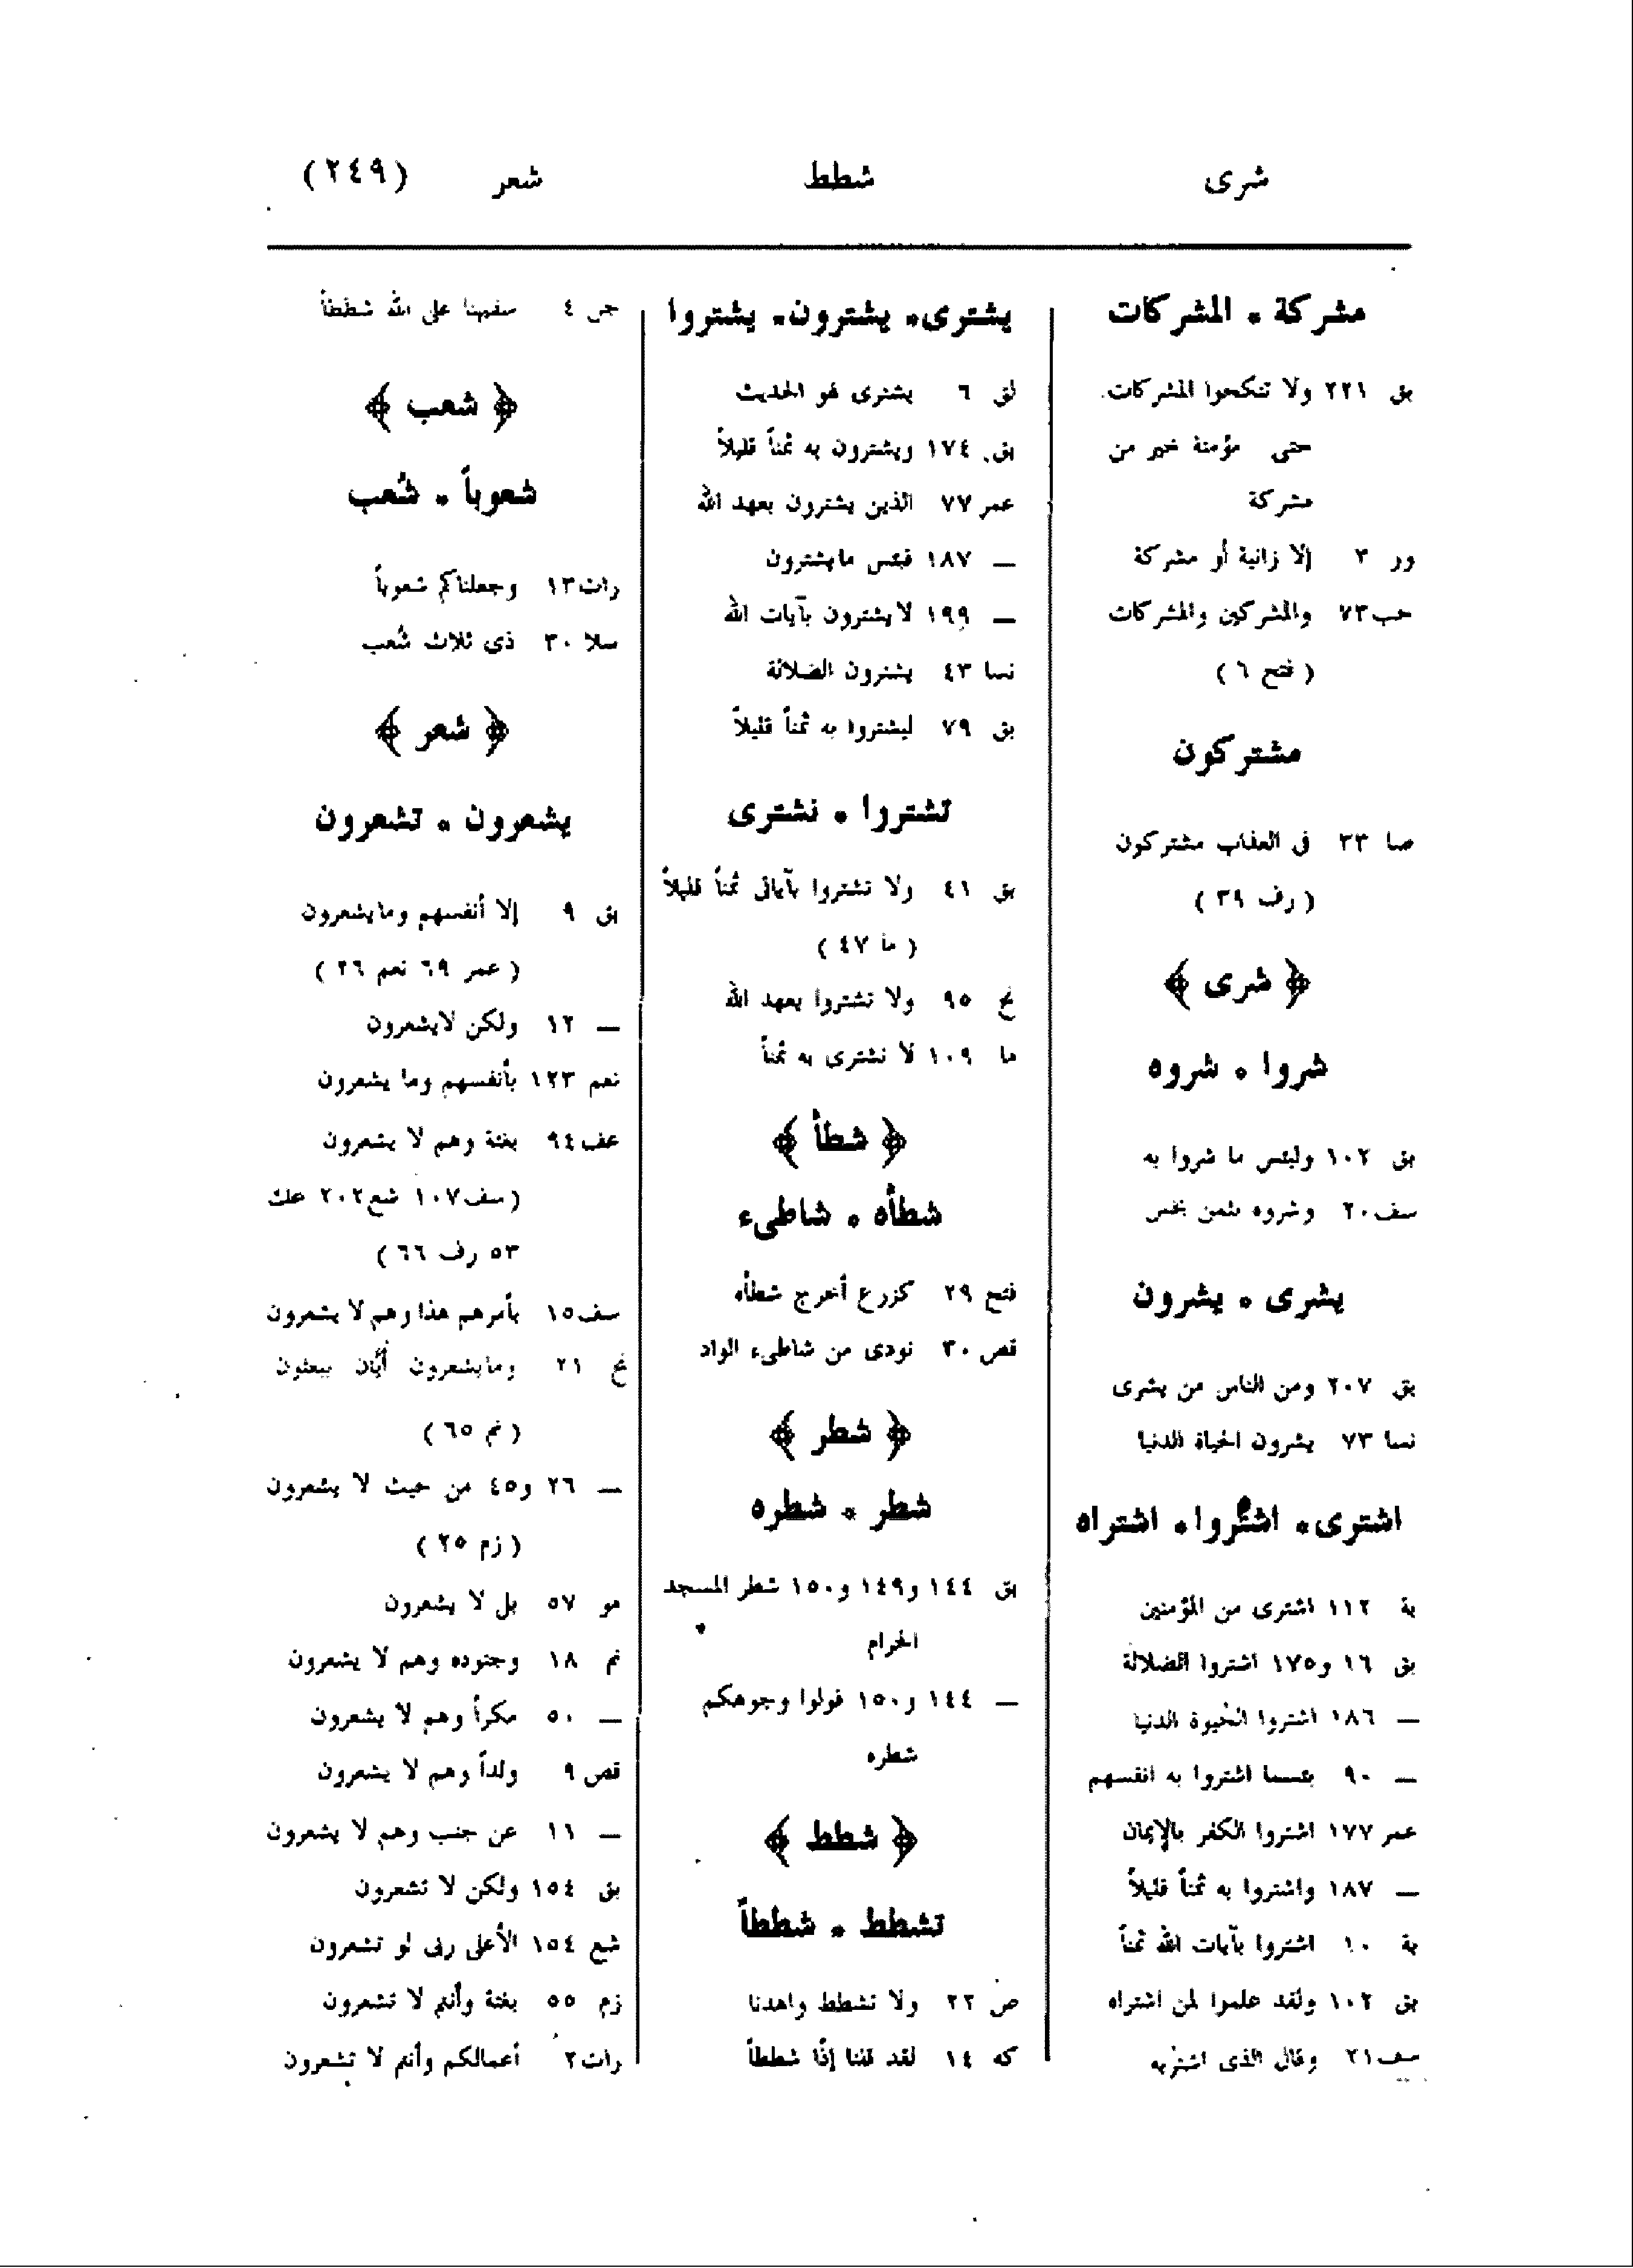 شرى شطط شعر (٢٤٩)
مشركة * المشركات
بق ٢٢١ ولا تنكحوا المشركات
حتى مؤمنة خير من
مشركة
ور ٣ إلا زانية أو مشركة
حب ٧٣ والمشركين والمشركات
( فتح ٦ )
مشتركون
صا ٣٣ فى العذاب مشتركون
( رف ٣٩ )
﴿ شرى ﴾
شروا * شروه
بق ١٠٢ ولبئس ما شروا به
سف ٢٠ وشروه بثمن بخس
يشرى * يشرون
بق ٢٠٧ ومن الناس من يشرى
نسا ٧٣ يشرون الحياة الدنيا
اشترى * اشتروا * اشتراه
بة ١١٢ اشترى من المؤمنين
بق ١٦ و١٧٥ اشتروا الضلالة
ــ ١٨٦ اشتروا الحيوة الدنيا
ــ ٩٠ بئسما اشتروا به انفسهم
عمر ١٧٧ اشتروا الكفر بالإيمان
ــ ١٨٧ واشتروا به ثمناً قليلاً
بة ١٠ اشتروا بآيات الله ثمناً
بق ١٠٢ ولقد علموا لمن اشتراه
سف ٢١ وقال الذى اشتريه
يشترى * يشترون * يشتروا
لق ٦ يشترى لهو الحديث
بق ١٧٤ ويشترون به ثمناً قليلاً
عمر ٧٧ الذين يشترون بعهد الله
ــ ١٨٧ فبئس مايشترون
ــ ١٩٩ لا يشترون بآيات الله
نسا ٤٣ يشترون الضلالة
بق ٧٩ ليشتروا به ثمناً قليلاً
تشتروا * نشترى
بق ٤١ ولا تشتروا بآياتى ثمناً قليلاً
( ما ٤٧ )
نح ٩٥ ولا تشتروا بعهد الله
ما ١٠٩ لا نشترى به ثمناً
﴿ شطأ ﴾
شطأه * شاطىء
فتح ٢٩ كزرع أخرج شطأه
قص ٣٠ نودى من شاطىء الواد
﴿ شطر ﴾
شطر * شطره
بق ١٤٤ و١٤٩ و١٥٠ شطر المسجد
الحرام
ــ ١٤٤ و١٥٠ فولوا وجوهكم
شطره
﴿ شطط ﴾
تشطط * شططاً
ص ٢٢ ولا تشطط واهدنا
كه ١٤ لقد قلنا إذًا شططاً
جن ٤ سفيهنا على الله شططاً
﴿ شعب ﴾
شعوباً * شُعب
رات ١٣ وجعلناكم شعوباً
سلا ٣٠ ذى ثلاث شُعب
﴿ شعر ﴾
يشعرون * تشعرون
بق ٩ إلا أنفسهم ومايشعرون
( عمر ٦٩ نعم ٢٦ )
ــ ١٢ ولكن لايشعرون
نعم ١٢٣ بأنفسهم وما يشعرون
عف ٩٤ بغتة وهم لا يشعرون
( سف ١٠٧ شع ٢٠٢ عنك
٥٣ رف ٦٦ )
سف ١٥ بأمرهم هذا وهم لا يشعرون
نح ٢١ ومايشعرون أيَّان يبعثون
( نم ٦٥ )
ــ ٢٦ و٤٥ من حيث لا يشعرون
( زم ٢٥ )
مو ٥٧ بل لا يشعرون
نم ١٨ وجنوده وهم لا يشعرون
ــ ٥٠ مكراً وهم لا يشعرون
قص ٩ ولداً وهم لا يشعرون
ــ ١١ عن جنب وهم لا يشعرون
بق ١٥٤ ولكن لا تشعرون
شع ١٥٤ الأعلى ربى لو تشعرون
زم ٥٥ بغتة وأنتم لا تشعرون
رات ٢ أعمالكم وأنتم لا تشعرون